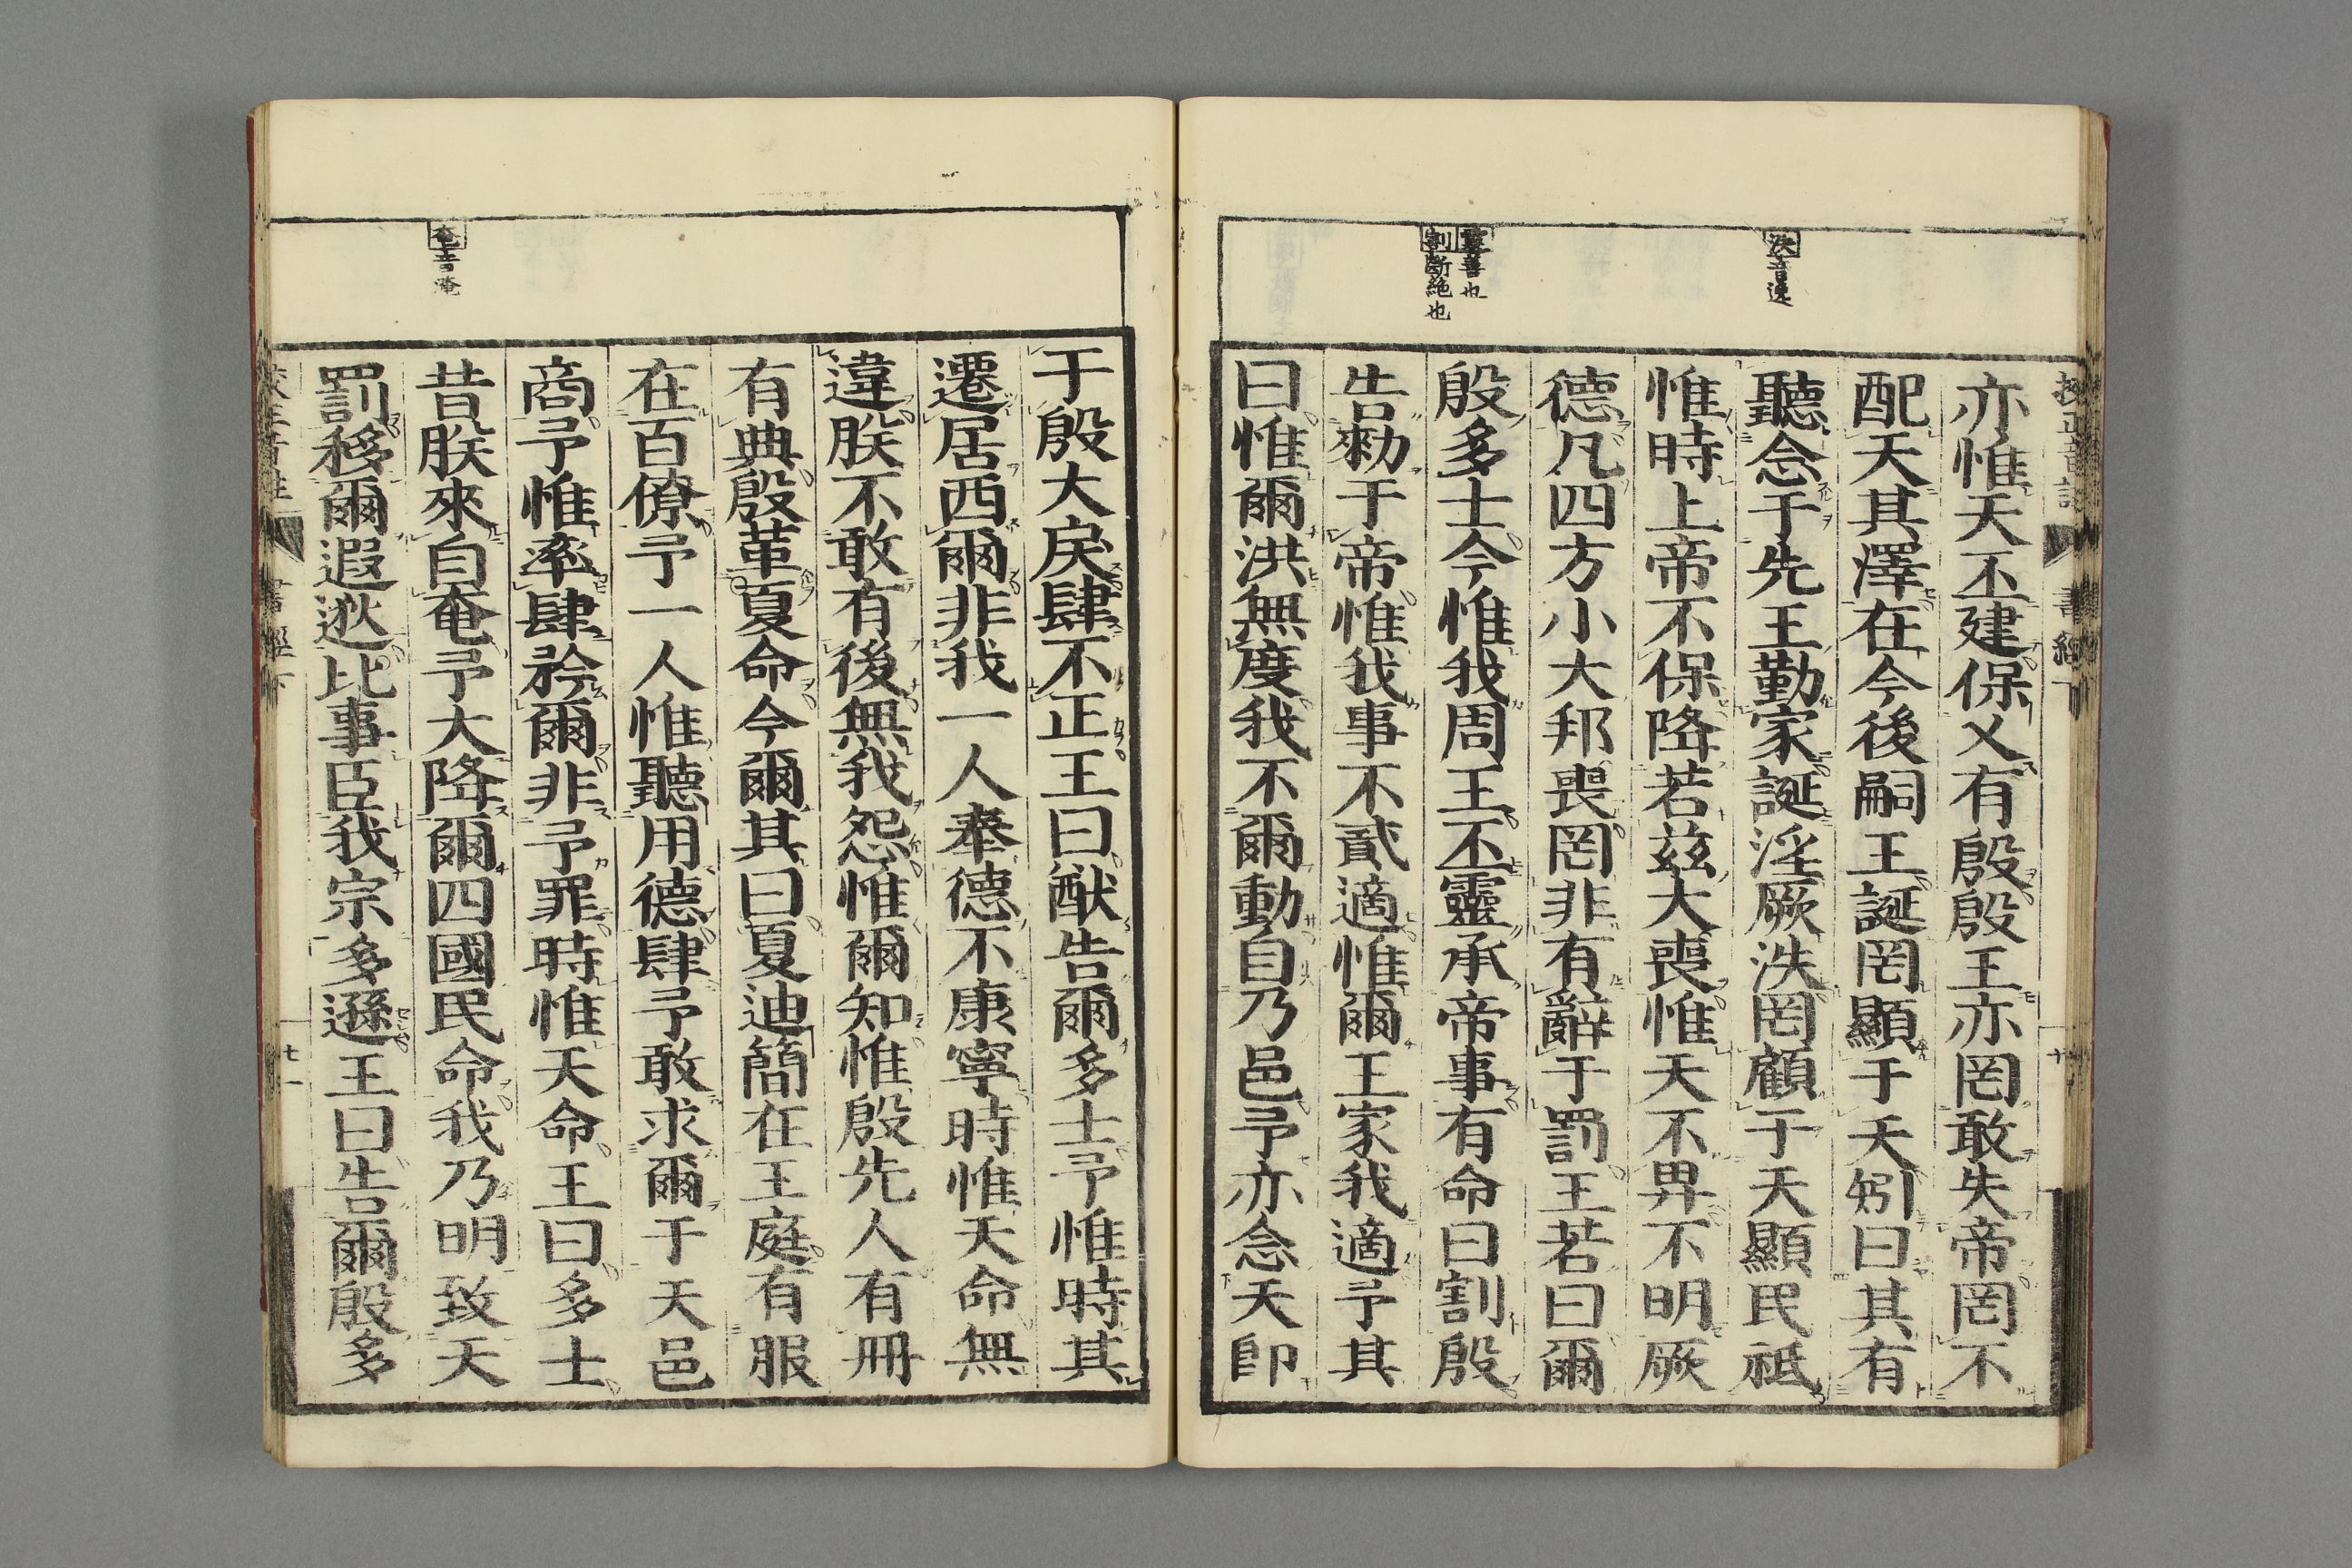 洪音逸
靈善也
割斷絶也
亦惟天丕建保乂有殷殷王亦罔敢失帝罔不
配天其澤在今後嗣王誕罔顯于天矧曰其有
聽念于先王勤家誕淫厥泆罔顧于天顯民祗
惟時上帝不保降若茲大喪惟天不畀不明厥
德凡四方小大邦喪罔非有辭于罰王若曰爾
殷多士今惟我周王丕靈承帝事有命曰割殷
告勑于帝惟我事不貳適惟爾王家我適予其
曰惟爾洪無度我不爾動自乃邑予亦念天卽
奄音淹
于殷大戾肆不正王曰猷告爾多士予惟時其
遷居西爾非我一人奉德不康寧時惟天命無
違朕不敢有後無我怨惟爾知惟殷先人有冊
有典殷革夏命今爾其曰夏迪簡在王庭有服
在百僚予一人惟聽用德肆予敢求爾于天邑
商予惟率肆矜爾非予罪時惟天命王曰多士
昔朕來自奄予大降爾四國民命我乃明致天
罰移爾遐逖比事臣我宗多遜王曰告爾殷多